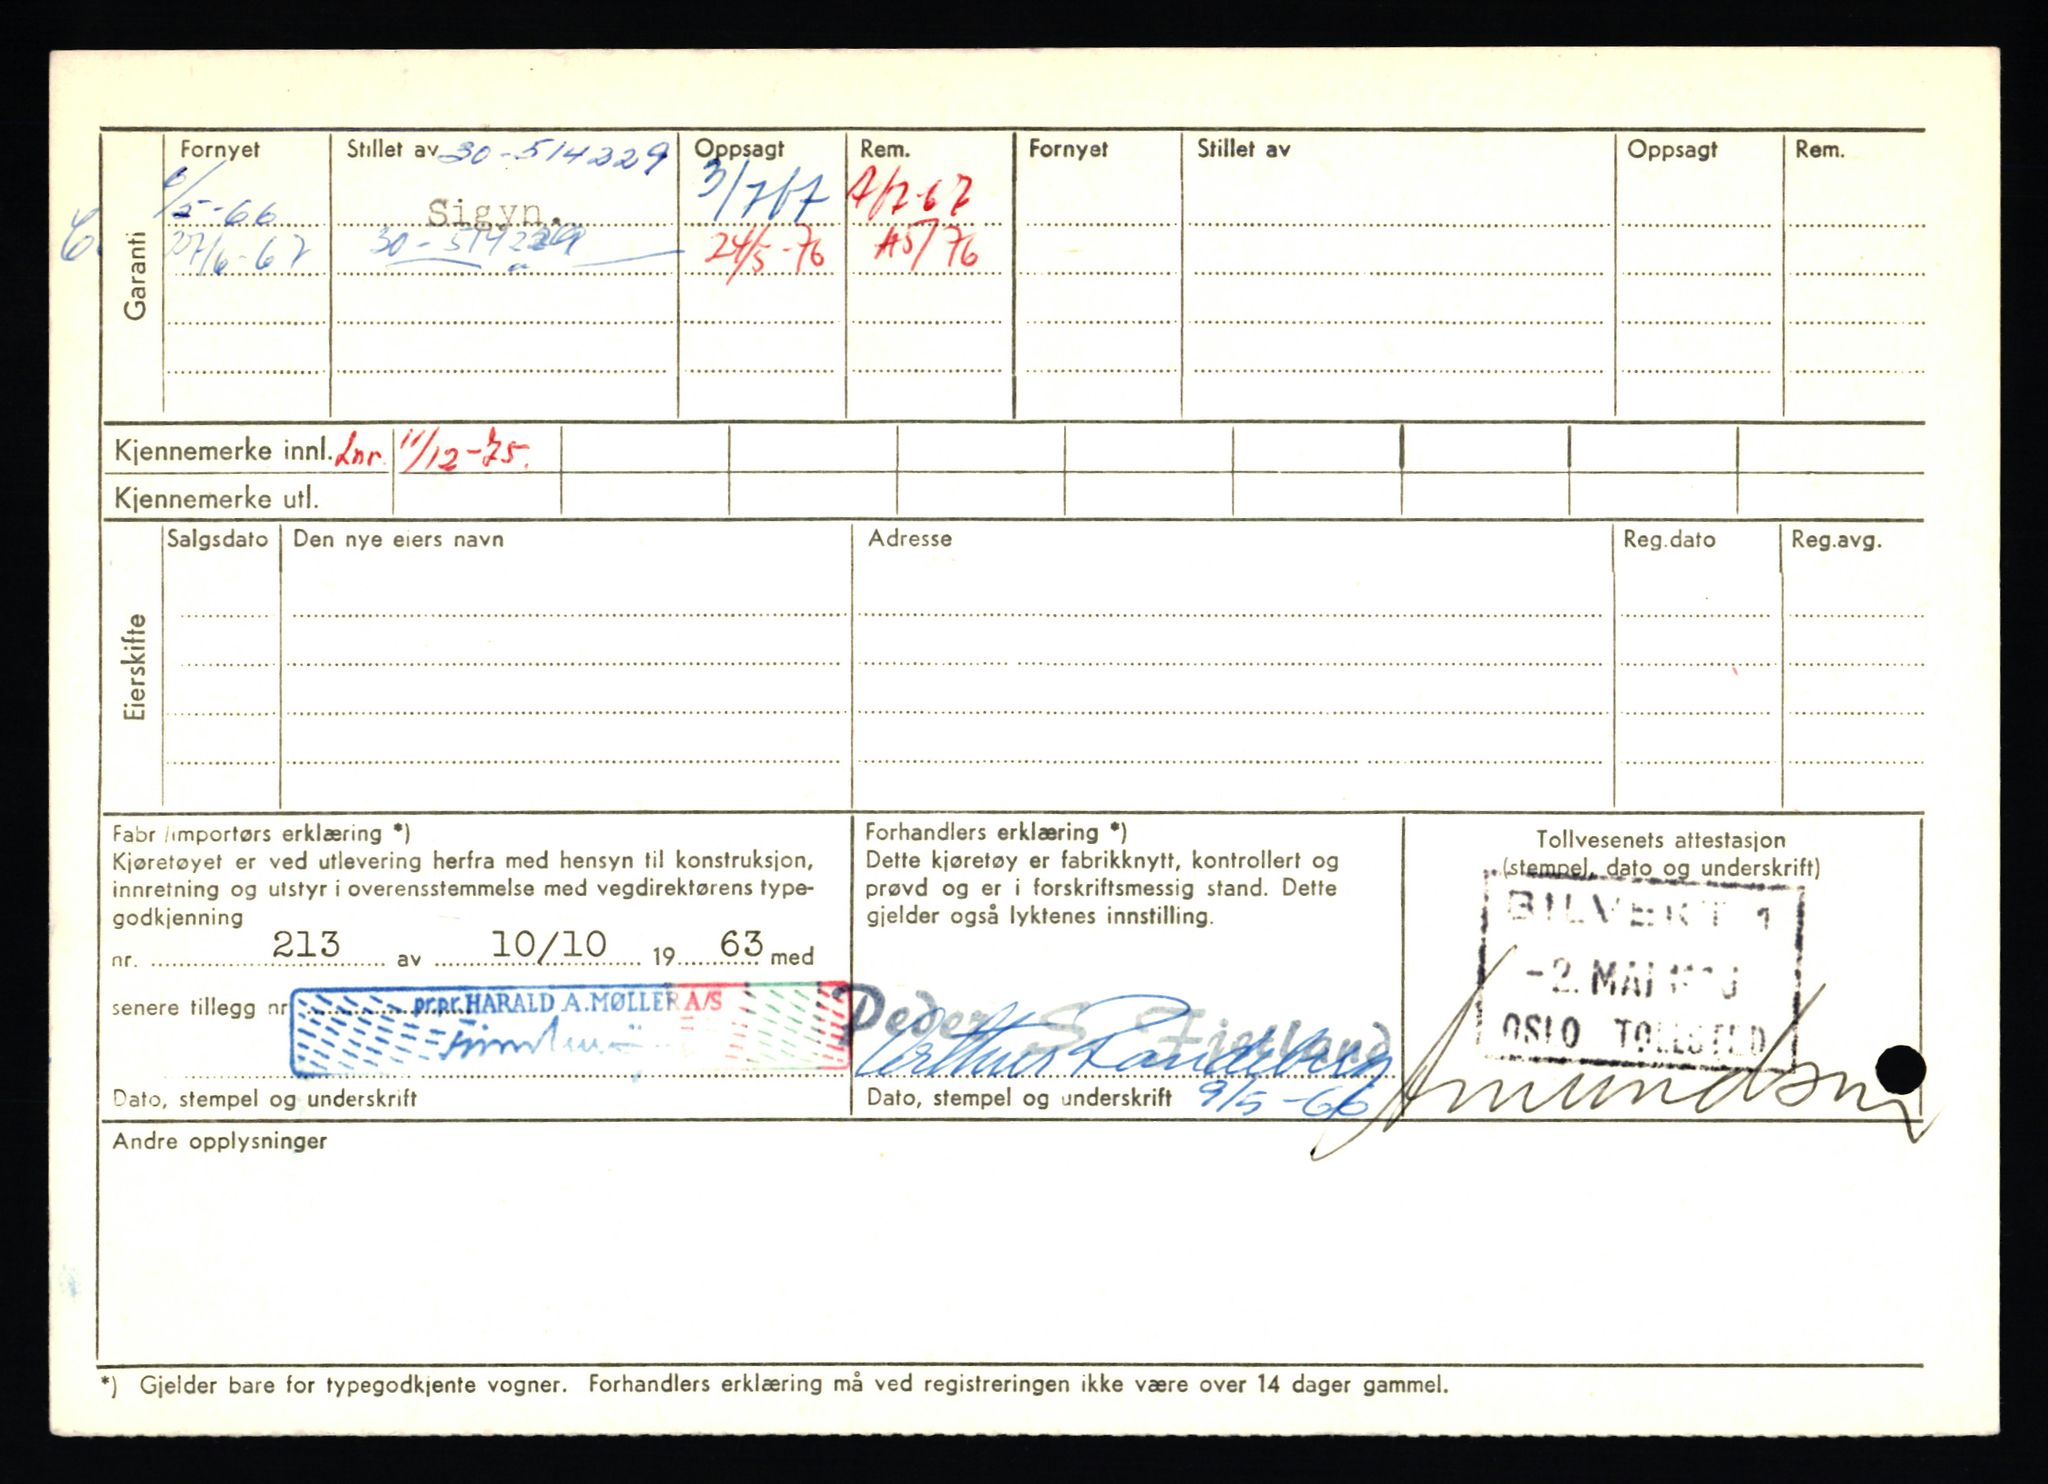 Fornyet Stillet av 30-514229 Oppsagt Rem. Fornyet Stillet av Oppsagt Rem.
6/5-66 Sigyn. 3/7 67 A/7-67
27/6-67 30-514229 24/5-76 A5/76
Garanti
Kjennemerke innl. Lnr. 11/12-75.
Kjennemerke utl.
Salgsdato Den nye eiers navn Adresse Reg.dato Reg.avg.
Eierskifte
Fabr /importørs erklæring *)
Kjøretøyet er ved utlevering herfra med hensyn til konstruksjon,
innretning og utstyr i overensstemmelse med vegdirektørens type-
godkjenning
nr. 213 av 10/10 19 63 med
senere tillegg nr
pr.pr. HARALD A. MØLLER A/S
Dato, stempel og underskrift
Forhandlers erklæring *)
Dette kjøretøy er fabrikknytt, kontrollert og
prøvd og er i forskriftsmessig stand. Dette
gjelder også lyktenes innstilling.
Peder S Fjelland
Arthur Randeberg
Dato, stempel og underskrift 9/5-66
Tollvesenets attestasjon
(stempel, dato og underskrift)
BILVEKT 1
-2. MAI
OSLO TOLLSTED
Amundsen
Andre opplysninger
*) Gjelder bare for typegodkjente vogner. Forhandlers erklæring må ved registreringen ikke være over 14 dager gammel.